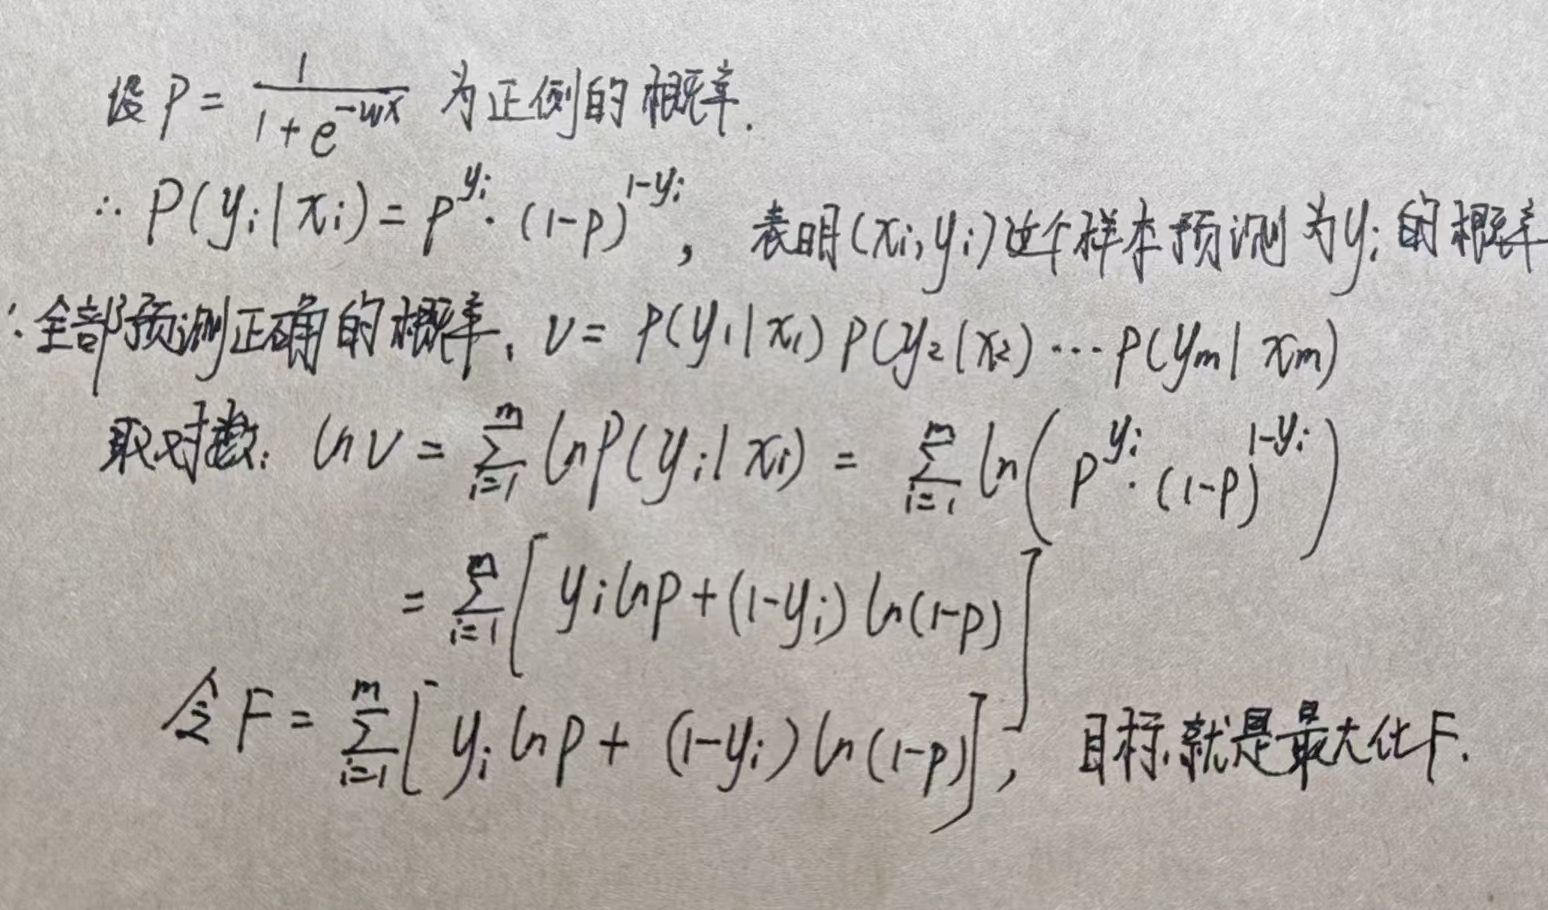 设 P = 1/(1+e^{-wx}) 为正例的概率.
∴ P(y_i|x_i) = p^{y_i}·(1-p)^{1-y_i}, 表明(x_i,y_i)这个样本预测为y_i的概率
∴全部预测正确的概率, V = P(y_1|x_1) P(y_2|x_2) ⋯ P(y_m|x_m)
取对数: ln V = ∑_{i=1}^{m} ln P(y_i|x_i) = ∑_{i=1}^{m} ln(p^{y_i}·(1-p)^{1-y_i})
= ∑_{i=1}^{m} [y_i ln p + (1-y_i) ln(1-p)]
令 F = ∑_{i=1}^{m} [y_i ln p + (1-y_i) ln(1-p)], 目标就是最大化F.